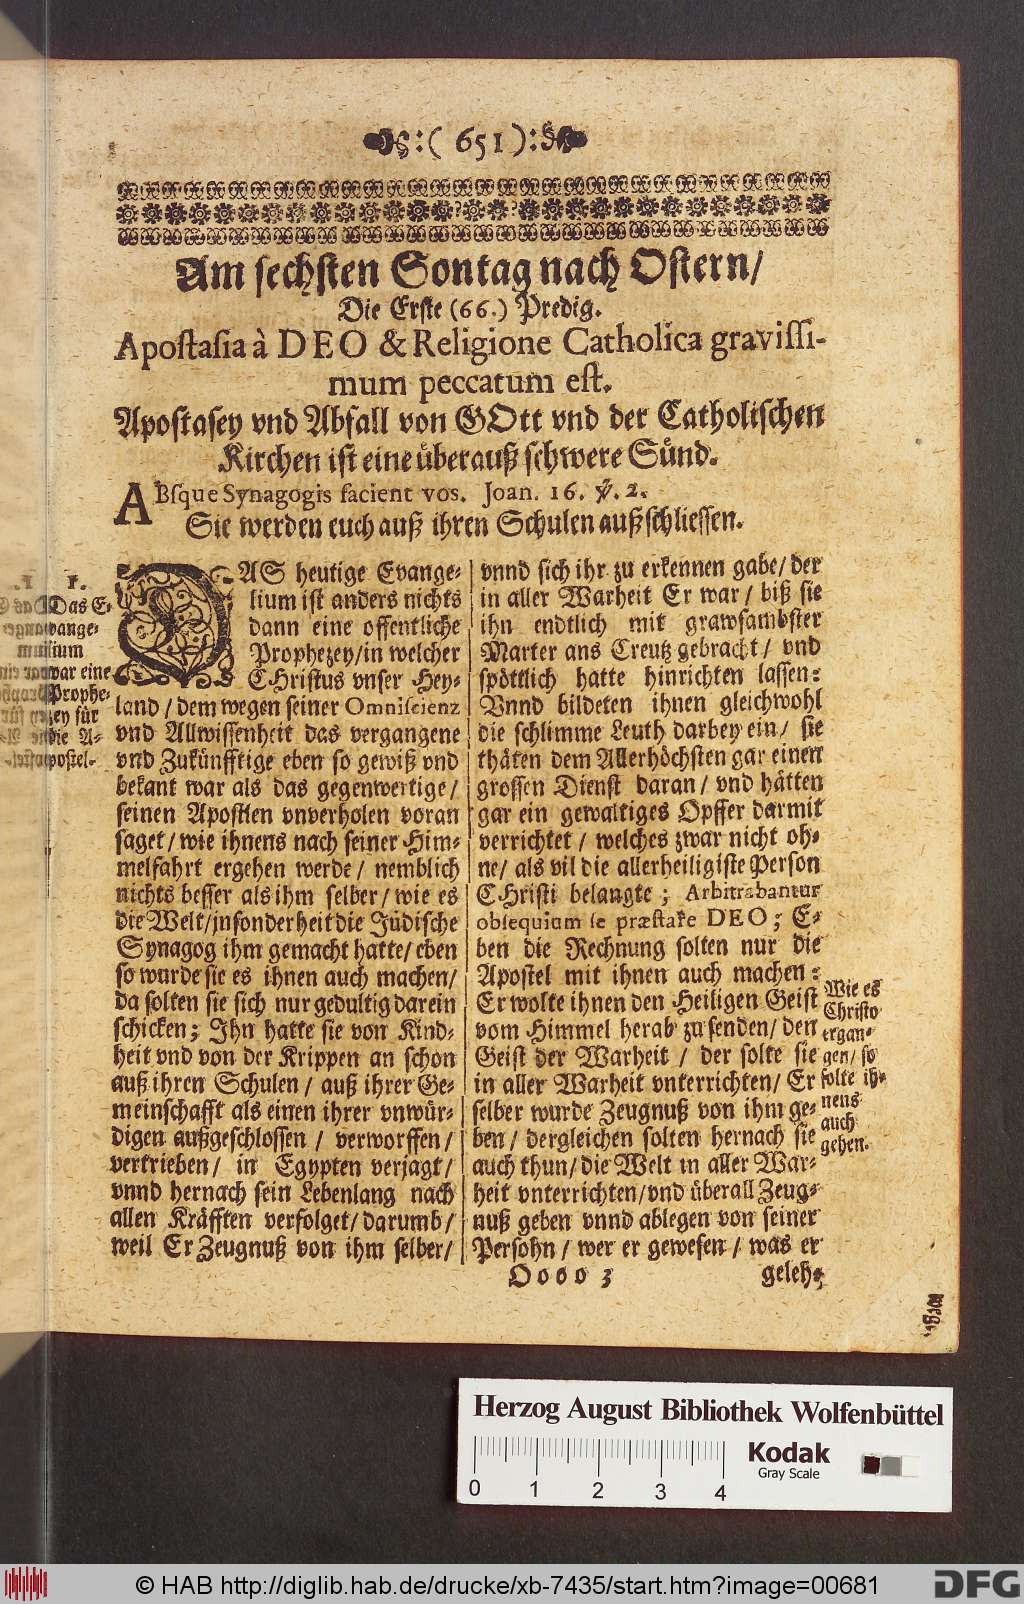 :( 651 ):
Am sechsten Sontag nach Ostern/
Die Erste (66.) Predig.
Apostasia à DEO & Religione Catholica gravissi-
mum peccatum est.
Apostasey vnd Abfall von GOtt vnd der Catholischen
Kirchen ist eine überauß schwere Sünd.
ABsque Synagogis facient vos. Joan. 16. ℣. 2.
Sie werden euch auß ihren Schulen außschliessen.
1.
Das E-
vange-
lium
war eine
Prophe-
zey für
die A-
postel.
DAS heutige Evange-
lium ist anders nichts
dann eine offentliche
Prophezey/in welcher
CHristus vnser Hey-
land/dem wegen seiner Omniscienz
vnd Allwissenheit das vergangene
vnd Zukünfftige eben so gewiß vnd
bekant war als das gegenwertige/
seinen Apostlen vnverholen voran
saget/wie ihnens nach seiner Him-
melfahrt ergehen werde/ nemblich
nichts besser als ihm selber/wie es
die Welt/jnsonderheit die Jüdische
Synagog ihm gemacht hatte/eben
so wurde sie es ihnen auch machen/
da solten sie sich nur gedultig darein
schicken; Ihn hatte sie von Kind-
heit vnd von der Krippen an schon
auß ihren Schulen/ auß ihrer Ge-
meinschafft als einen ihrer vnwür-
digen außgeschlossen/ verworffen/
vertrieben/ in Egypten verjagt/
vnnd hernach sein Lebenlang nach
allen Kräfften verfolget/darumb/
weil Er Zeugnuß von ihm selber/
vnnd sich ihr zu erkennen gabe/der
in aller Warheit Er war/ biß sie
ihn endtlich mit grawsambster
Marter ans Creutz gebracht/ vnd
spöttlich hatte hinrichten lassen:
Vnnd bildeten ihnen gleichwohl
die schlimme Leuth darbey ein/ sie
thäten dem Allerhöchsten gar einen
grossen Dienst daran/ vnd hätten
gar ein gewaltiges Opffer darmit
verrichtet/ welches zwar nicht oh-
ne/ als vil die allerheiligiste Person
CHristi belangte; Arbitrabantur
obsequium se præstare DEO; E-
ben die Rechnung solten nur die
Apostel mit ihnen auch machen:
Er wolte ihnen den Heiligen Geist
vom Himmel herab zu senden/ den
Geist der Warheit/ der solte sie
in aller Warheit vnterrichten/ Er
selber wurde Zeugnuß von ihm ge-
ben/ dergleichen solten hernach sie
auch thun/die Welt in aller War-
heit vnterrichten/vnd überall Zeug-
nuß geben vnnd ablegen von seiner
Persohn/ wer er gewesen/ was er
Wie es
Christo
ergan-
gen/ so
solte ih-
nens
auch
gehen.
Oooo 3
geleh-
Herzog August Bibliothek Wolfenbüttel
Kodak
Gray Scale
0 1 2 3 4
© HAB http://diglib.hab.de/drucke/xb-7435/start.htm?image=00681
DFG